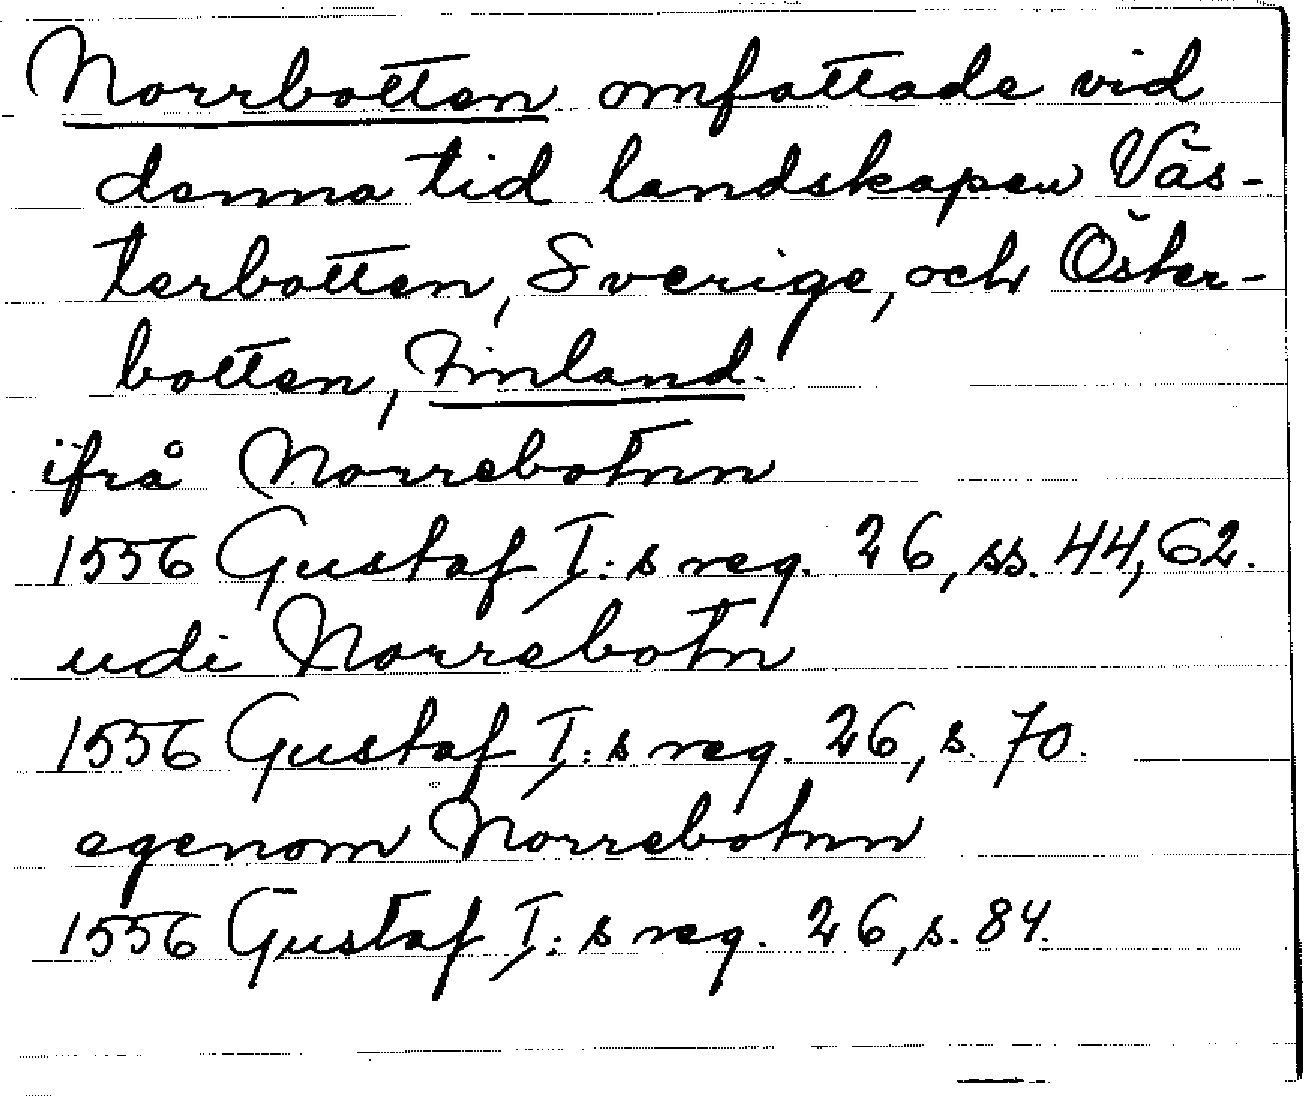 Norrbotten omfattade vid
denna tid landskapen Väs-
terbotten, Sverige, och Öster-
botten, Finland.
ifrå Norrebotnn
1556 Gustaf I:s reg. 26, ss. 44, 62.
udi Norrebotn
1556 Gustaf I:s reg. 26, s. 70.
egenom Norrebotnn
1556 Gustaf I:s reg. 26, s. 84.